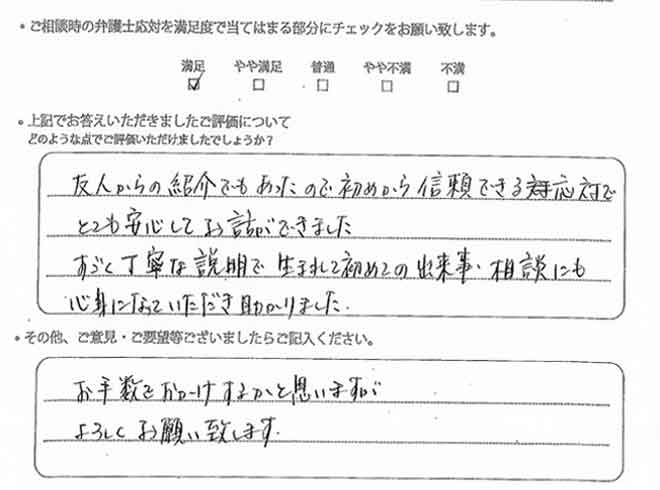 ・ご相談時の弁護士応対を満足度で当てはまる部分にチェックをお願い致します。
満足 やや満足 普通 やや不満 不満
☑ □ □ □ □
・上記でお答えいただきましたご評価について
どのような点でご評価いただけましたでしょうか?
友人からの紹介でもあったので初めから信頼できる応対で
とても安心してお話ができました
すごく丁寧な説明で生まれて初めての出来事、相談にも
心身になっていただき助かりました.
・その他、ご意見・ご要望等ございましたらご記入ください。
お手数をおかけするかと思いますが
よろしくお願い致します.